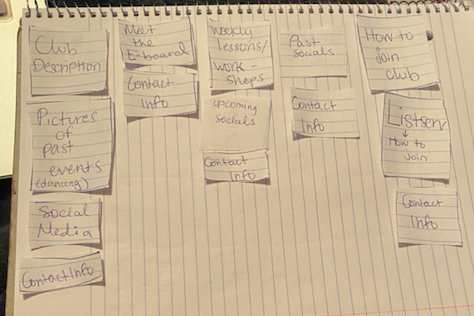 Club
Description
Pictures
of
past
events
(dancing)
Social
Media
Contact Info
Meet
the
E-board
Contact
Info
Weekly
lessons/
work-
shops
upcoming
socials
Contact
Info
Past
socials
Contact
Info
How to
join
club
Listserv
↓
How to
join
Contact
Info